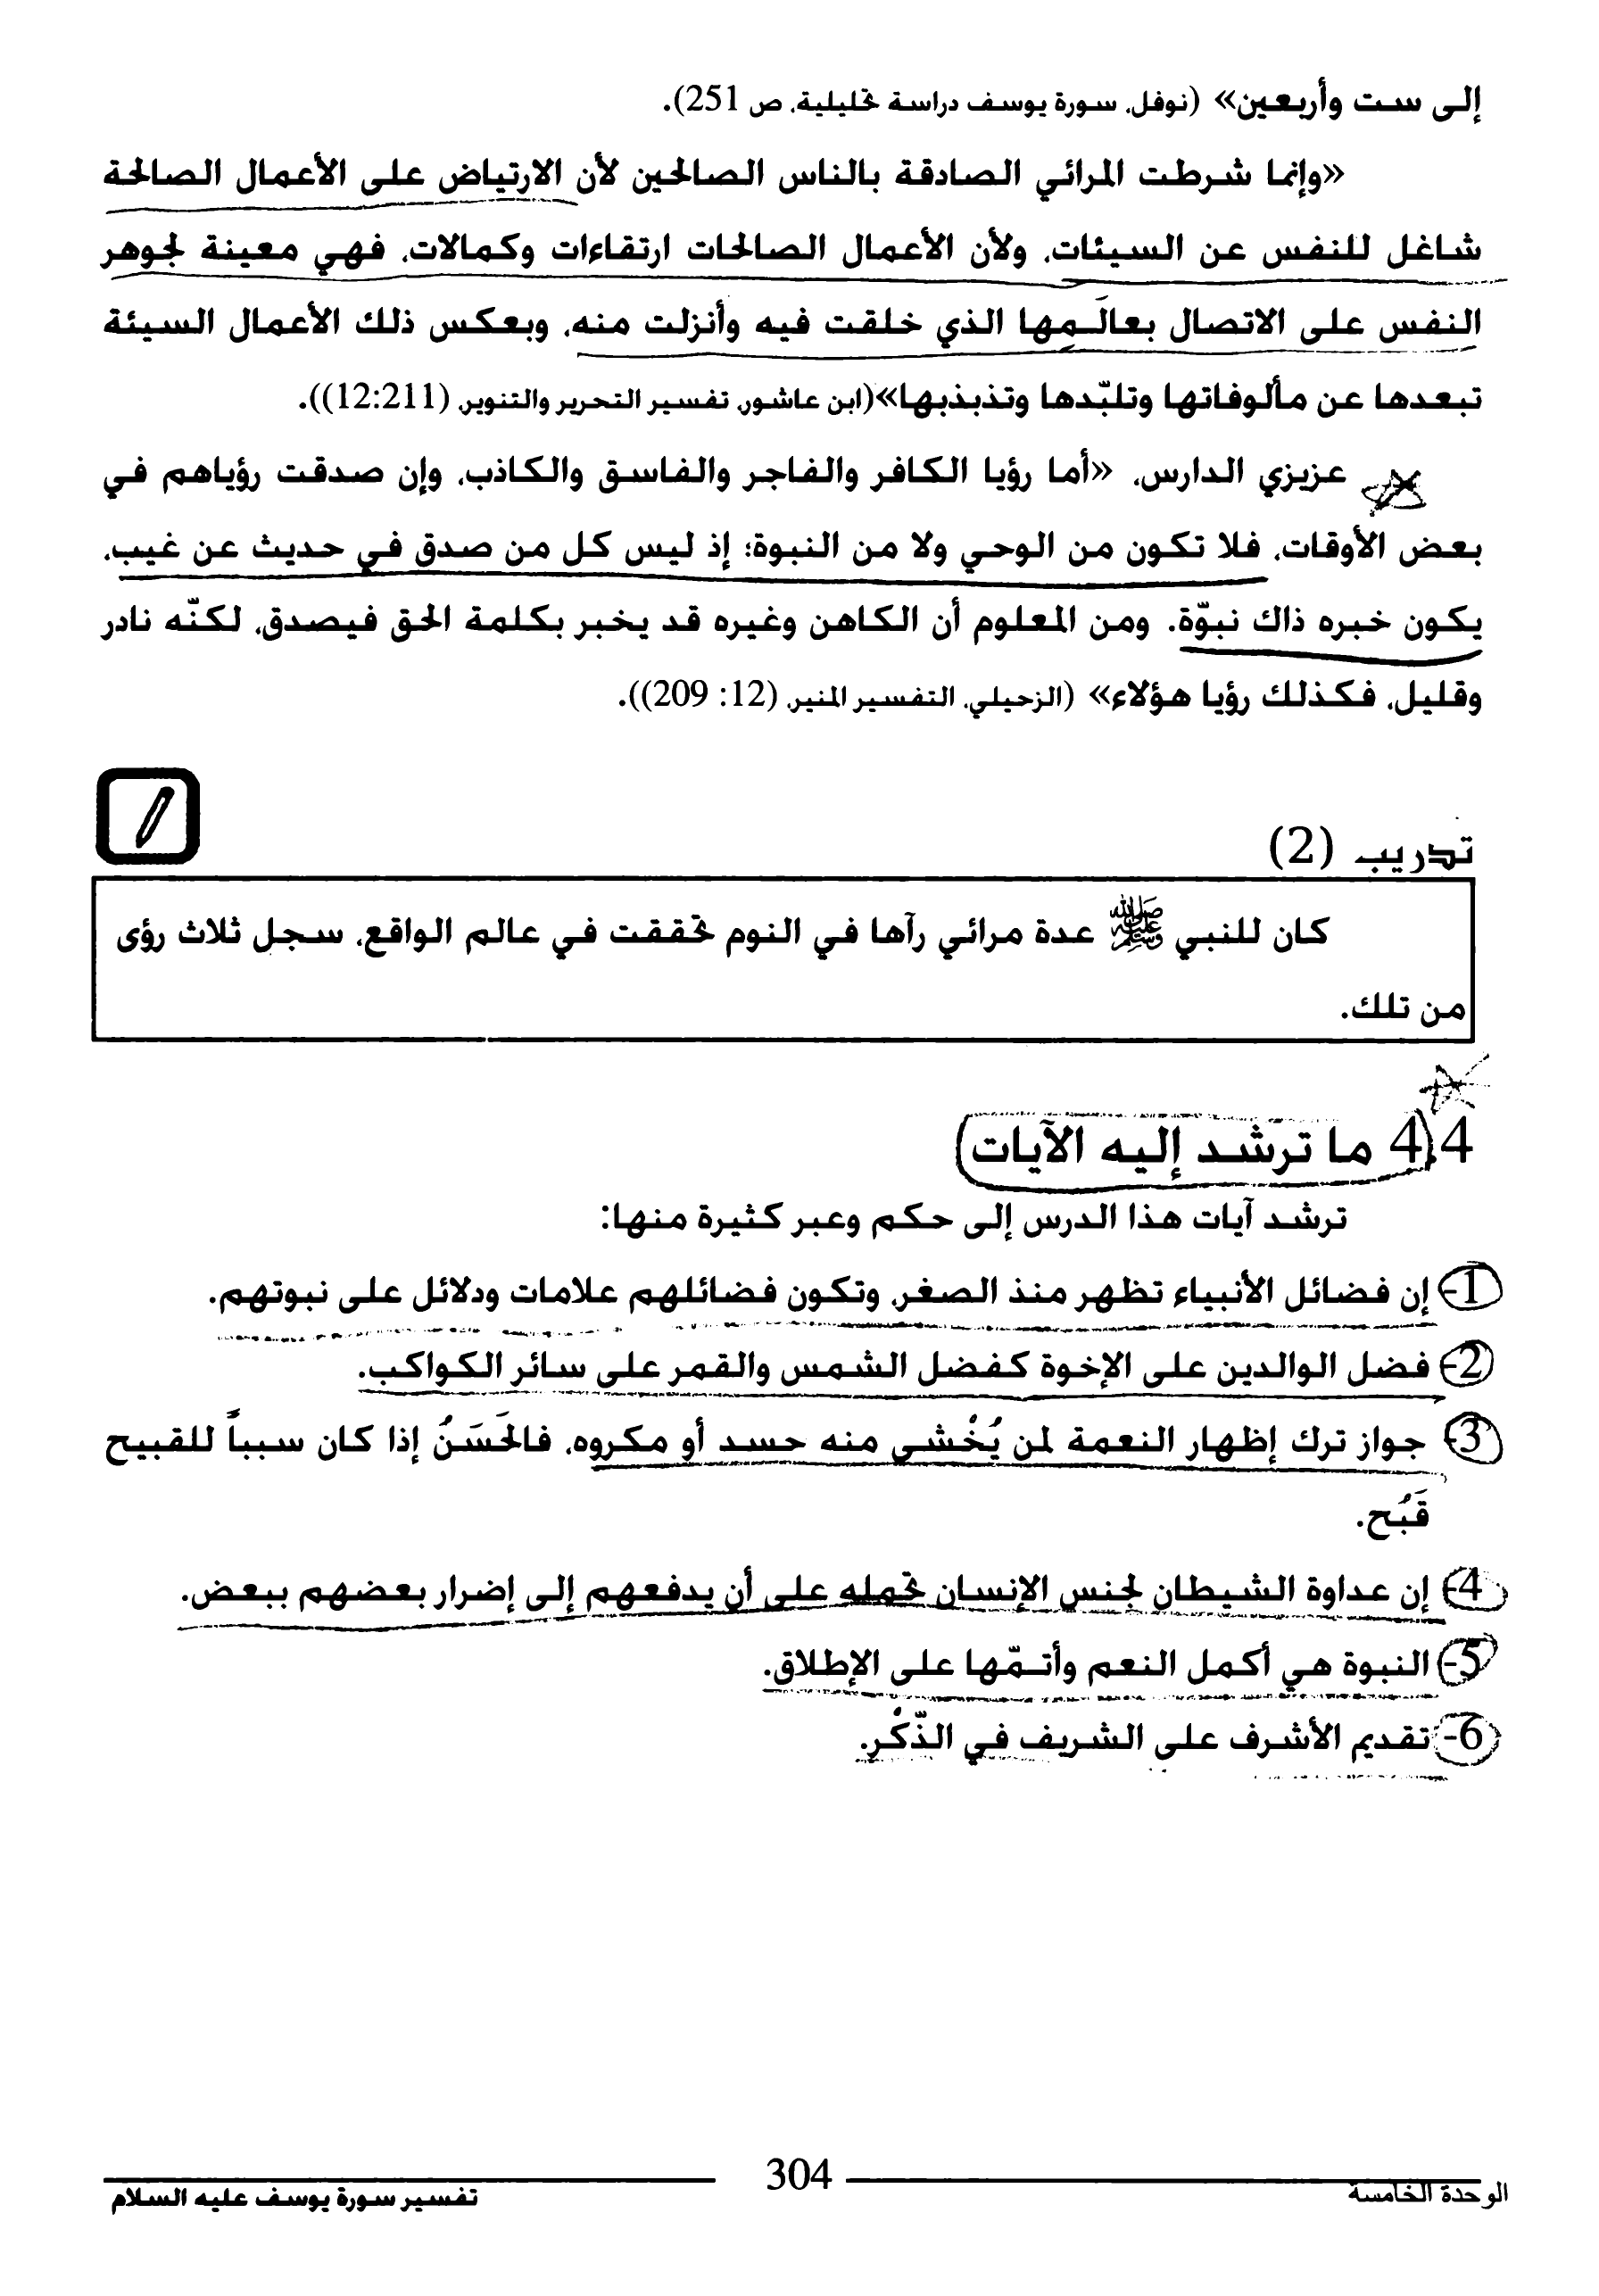 إلى ست وأربعين» (نوفل، سورة يوسف دراسة تحليلية، ص 251).
«وإنما شرطت المرائي الصادقة بالناس الصالحين لأن الارتياض على الأعمال الصالحة
شاغل للنفس عن السيئات، ولأن الأعمال الصالحات ارتقاءات وكمالات، فهي معينة لجوهر
النفس على الاتصال بعالَمِها الذي خلقت فيه وأنزلت منه، وبعكس ذلك الأعمال السيئة
تبعدها عن مألوفاتها وتلبّدها وتذبذبها»(ابن عاشور، تفسير التحرير والتنوير، (12:211)).
عزيزي الدارس، «أما رؤيا الكافر والفاجر والفاسق والكاذب، وإن صدقت رؤياهم في
بعض الأوقات، فلا تكون من الوحي ولا من النبوة؛ إذ ليس كل من صدق في حديث عن غيب،
يكون خبره ذاك نبوّة. ومن المعلوم أن الكاهن وغيره قد يخبر بكلمة الحق فيصدق، لكنّه نادر
وقليل، فكذلك رؤيا هؤلاء» (الزحيلي، التفسير المنير، (12: 209)).
تدريب (2)
كان للنبي ﷺ عدة مرائي رآها في النوم تحققت في عالم الواقع، سجل ثلاث رؤى
من تلك.
4.4 ما ترشد إليه الآيات
ترشد آيات هذا الدرس إلى حكم وعبر كثيرة منها:
1- إن فضائل الأنبياء تظهر منذ الصغر، وتكون فضائلهم علامات ودلائل على نبوتهم.
2- فضل الوالدين على الإخوة كفضل الشمس والقمر على سائر الكواكب.
3- جواز ترك إظهار النعمة لمن يُخْشى منه حسد أو مكروه، فالحَسَنُ إذا كان سبباً للقبيح
قَبُح.
4- إن عداوة الشيطان لجنس الإنسان تحمله على أن يدفعهم إلى إضرار بعضهم ببعض.
5- النبوة هي أكمل النعم وأتمّها على الإطلاق.
6- تقديم الأشرف على الشريف في الذّكْر.
الوحدة الخامسة
304
تفسير سورة يوسف عليه السلام